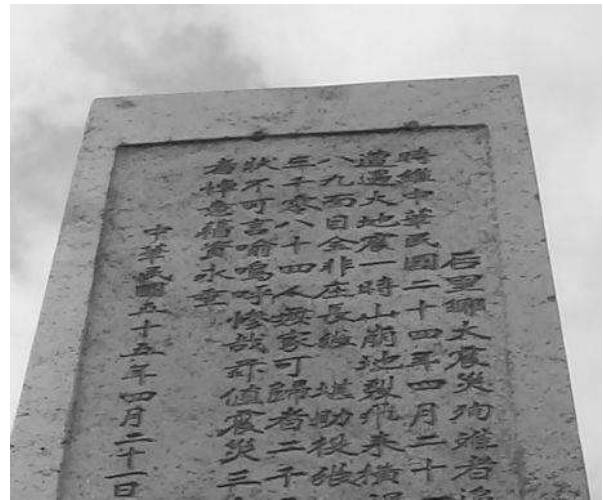 后里鄉大震災殉難者
時維中華民國二十四年四月二十
遭遇大地震一時山崩地裂飛来橫
八九面目全非庄長張 堪助役張
三千零八十四人無家可歸者二千
狀不可言喻嗚呼慘哉茲值震災三
者悼意資永
中華民國五十五年四月二十一日